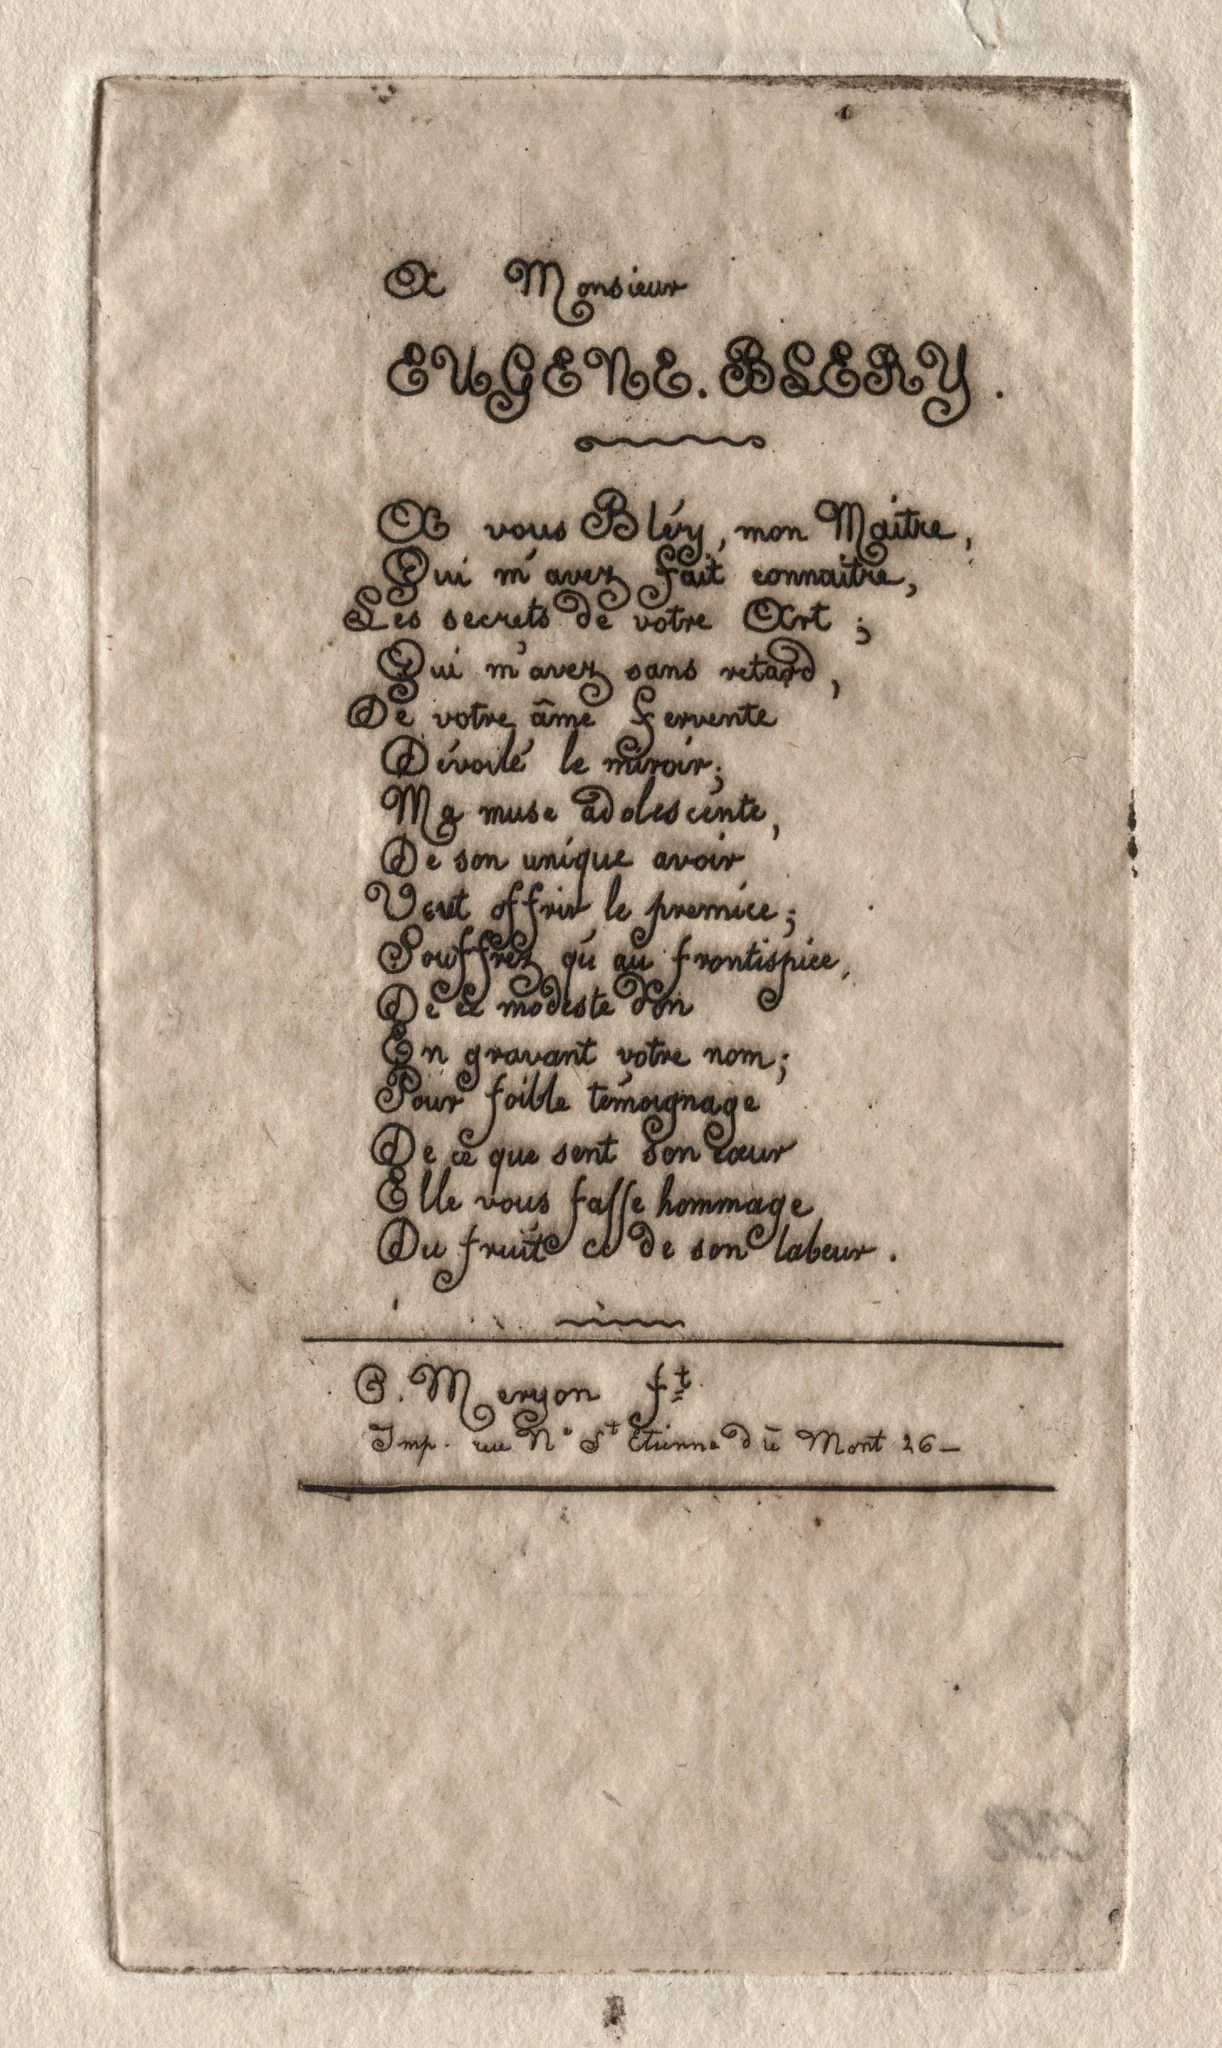 A Monsieur
EUGENE. BLERY.
A vous Bléry, mon Maitre,
Qui m'avez fait connaitre,
Les secrets de votre Art ;
Qui m'avez sans retard,
De votre âme fervente
Dévoilé le miroir;
Ma muse adolescente,
De son unique avoir
Veut offrir le premice;
Souffrez qu'au frontispice,
De ce modeste don
En gravant votre nom;
Pour foible témoignage
De ce que sent son cœur
Elle vous fasse hommage
Du fruit ci de son labeur.
C. Meryon ft.
Imp. rue N. St Etienne du Mont 26